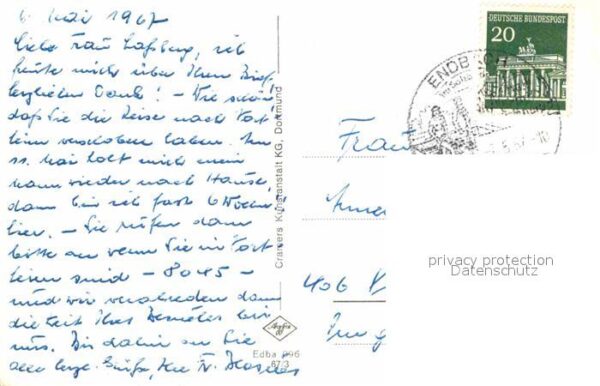 6. Mai 1967
Liebe Frau ich
freute mich über Ihren Brief,
herzlichen Dank! - Wie schön
daß Sie die Reise nach Dort
verschoben haben. Am
Mai holt mich mein
Mann wieder nach Hause,
dann bin ich fast 6 Wochen
hier. - Sie rufen dann
bitte an wenn Sie in Dort
sind - 8045 -
und wir verabreden dann
die Zeit Ihres Besuches bei
uns. Bis dahin an Sie
alle herzl. Grüße, Ihre
Cramers Kunstanstalt KG, Dortmund
Edba 996
67/3
DEUTSCHE BUNDESPOST
20
ENDB
Frau
406
privacy protection
Datenschutz